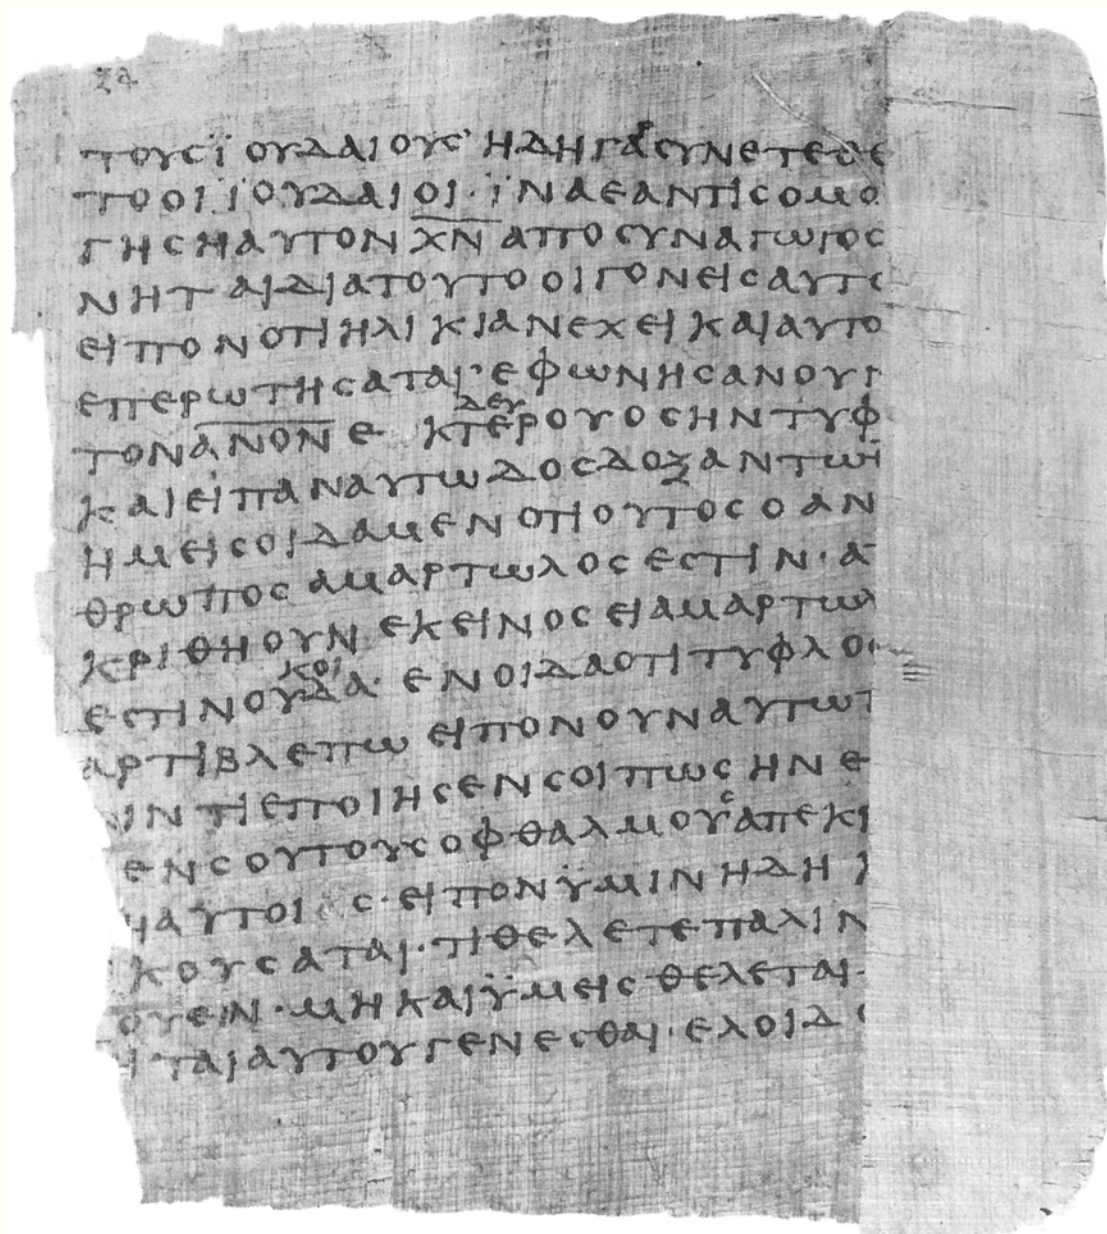 ξα
ΤΟΥϹΪΟΥΔΑΙΟΥϹ’ΗΔΗΓΑΡϹΥΝΕΤΕΘΕ
ΤΟΟΙΪΟΥΔΑΙΟΙ·ΪΝΑΕΑΝΤΙϹΟΜΟ
ΓΗϹΗΑΥΤΟΝΧ̅Ν̅ΑΠΟϹΥΝΑΓΩΓΟϹ
ΝΗΤΑΙΔΙΑΤΟΥΤΟΟΙΓΟΝΕΙϹΑΥΤΟ
ΕΙΠΟΝΟΤΙΗΛΙΚΙΑΝΕΧΕΙΚΑΙΑΥΤΟ
ΕΠΕΡΩΤΗϹΑΤΑΙ·ΕΦΩΝΗϹΑΝΟΥΝ
ΤΟΝΑ̅Ν̅Ο̅Ν̅Ε ΚΔΕΥΤΕΡΟΥΟϹΗΝΤΥΦ
ΚΑΙΕΙΠΑΝΑΥΤΩΔΟϹΔΟΞΑΝΤΩ
ΗΜΕΙϹΟΙΔΑΜΕΝΟΤΙΟΥΤΟϹΟΑΝ
ΘΡΩΠΟϹΑΜΑΡΤΩΛΟϹΕϹΤΙΝ·Α
ΚΡΙΘΗΟΥΝΕΚΕΙΝΟϹΕΙΑΜΑΡΤΩΛ
ΕϹΤΙΝΟΥΚΟΙΔΑ·ΕΝΟΙΔΑΟΤΙΤΥΦΛΟ
ΑΡΤΙΒΛΕΠΩΕΙΠΟΝΟΥΝΑΥΤΩΤ
ΙΝΤΙΕΠΟΙΗϹΕΝϹΟΙΠΩϹΗΝΕ
ΕΝϹΟΥΤΟΥϹΟΦΘΑΛΜΟΥϹΑΠΕΚΡΙ
ΗΑΥΤΟΙ Ϲ·ΕΙΠΟΝΫΜΙΝΗΔΗ
ΚΟΥϹΑΤΑΙ·ΤΙΘΕΛΕΤΕΠΑΛΙΝ
ΟΥΕΙΝ·ΜΗΚΑΙΫΜΕΙϹΘΕΛΕΤΑΙ
ΤΑΙΑΥΤΟΥΓΕΝΕϹΘΑΙ·ΕΛΟΙΔΟ